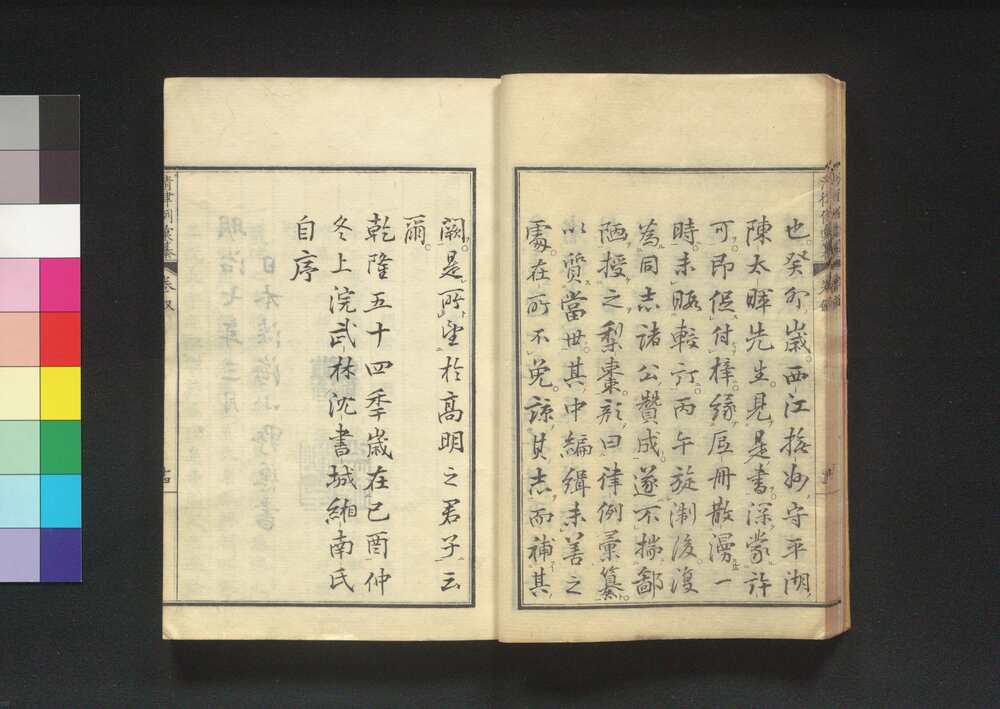 也癸卯歲西江
陳太暉先生見是書深蒙許
可即促付梓緣原冊散漫一
時未暇較訂丙午旋浙後復
為同志諸公贊成遂不揣鄙
陋授之梨棗顏曰律例彙纂
以質當世其中編緝未善之
處在所不免諒其志而補其
闕是所望於高明之君子云
爾
乾隆五十四季歲在已酉仲
冬上浣武林沈書城緗南氏
自序